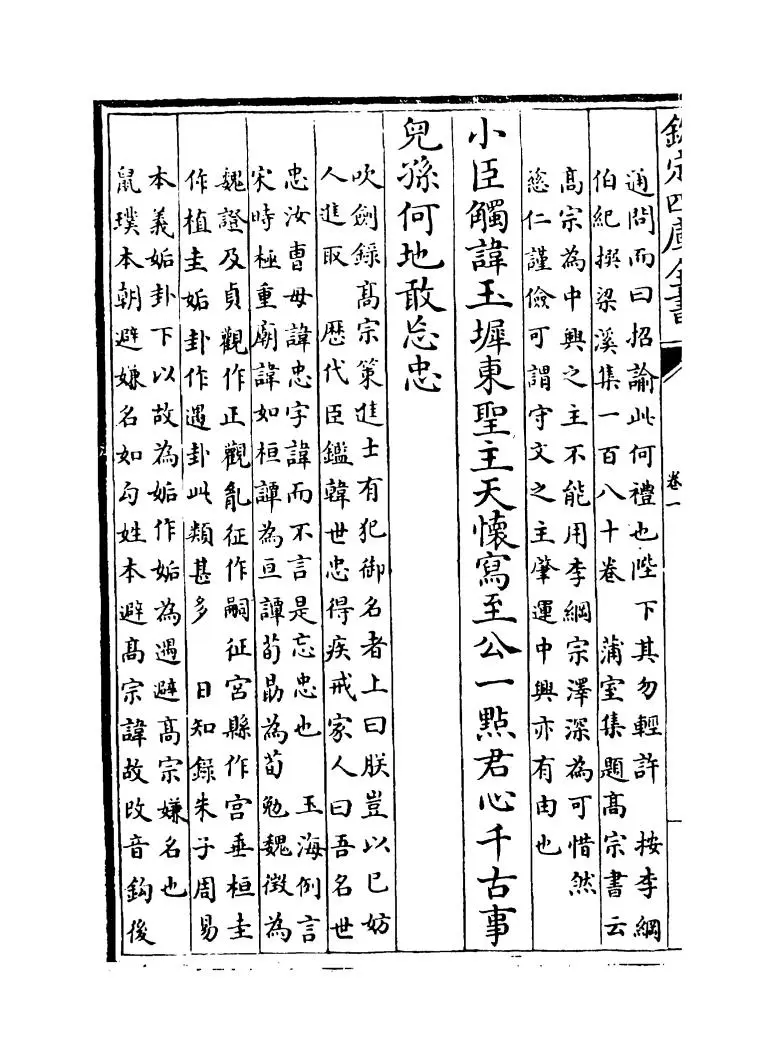 欽定四庫全書
卷一
通問而曰招諭此何禮也陛下其勿輕許　按李綱
伯紀撰梁溪集一百八十卷　蒲室集題髙宗書云
髙宗為中興之主不能用李綱宗澤深為可惜然
慈仁謹儉可謂守文之主肇運中興亦有由也
小臣觸諱玉墀東聖主天懷寫至公一點君心千古事
兒孫何地敢忘忠
吹劍錄髙宗策進士有犯御名者上曰朕豈以已妨
人進取　歴代臣鑑韓世忠得疾戒家人曰吾名世
忠汝曹毋諱忠字諱而不言是忘忠也　玉海例言
宋時極重廟諱如桓譚為亘譚荀勗為荀勉魏徴為
魏證及貞觀作正觀亂征作嗣征宫縣作宫垂桓圭
作植圭姤卦作遇卦此類甚多　日知錄朱子周易
本義姤卦下以故為姤作姤為遇避髙宗嫌名也
鼠璞本朝避嫌名如勾姓本避髙宗諱故改音鈎後